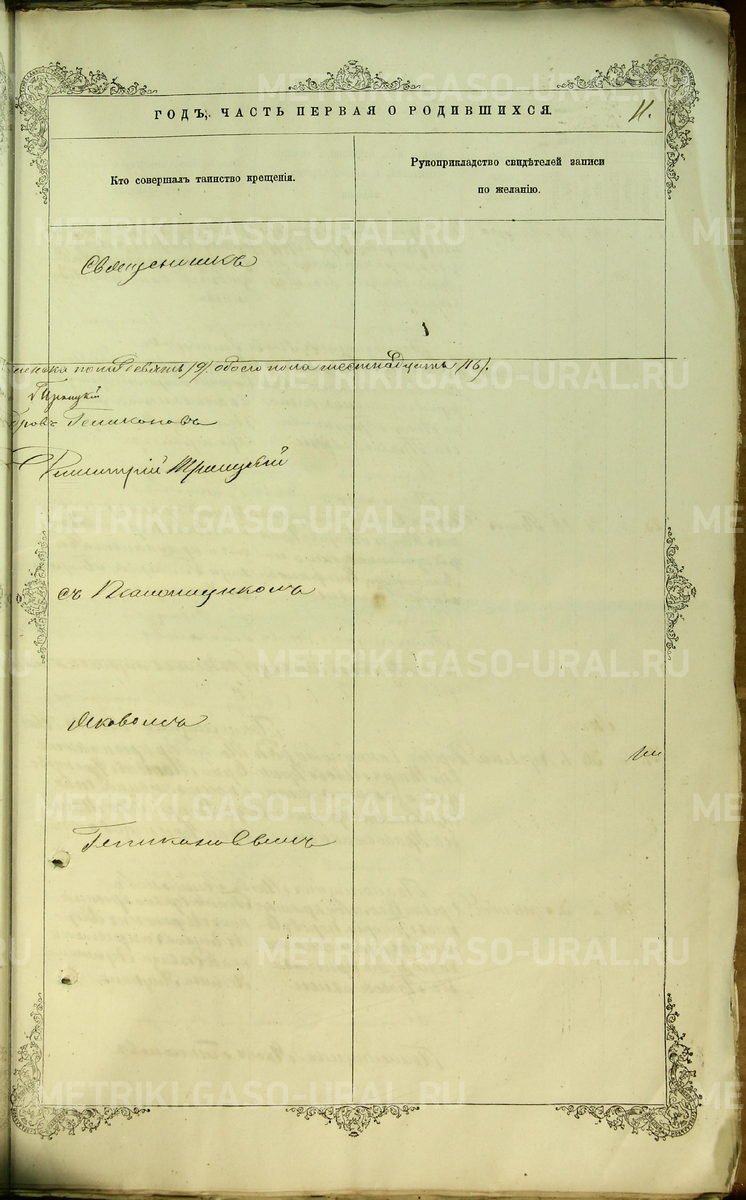 ГОДЪ, ЧАСТЬ ПЕРВАЯ О РОДИВШИХСЯ. 11.
Кто совершалъ таинство крещенія.
Рукоприкладство свидѣтелей записи по желанію.
Священникъ
пола девять /9/. обоего пола шестнадцать /16/.
Димитрій Троицкій
съ Псаломщикомъ
Яковомъ
METRIKI.GASO-URAL.RU